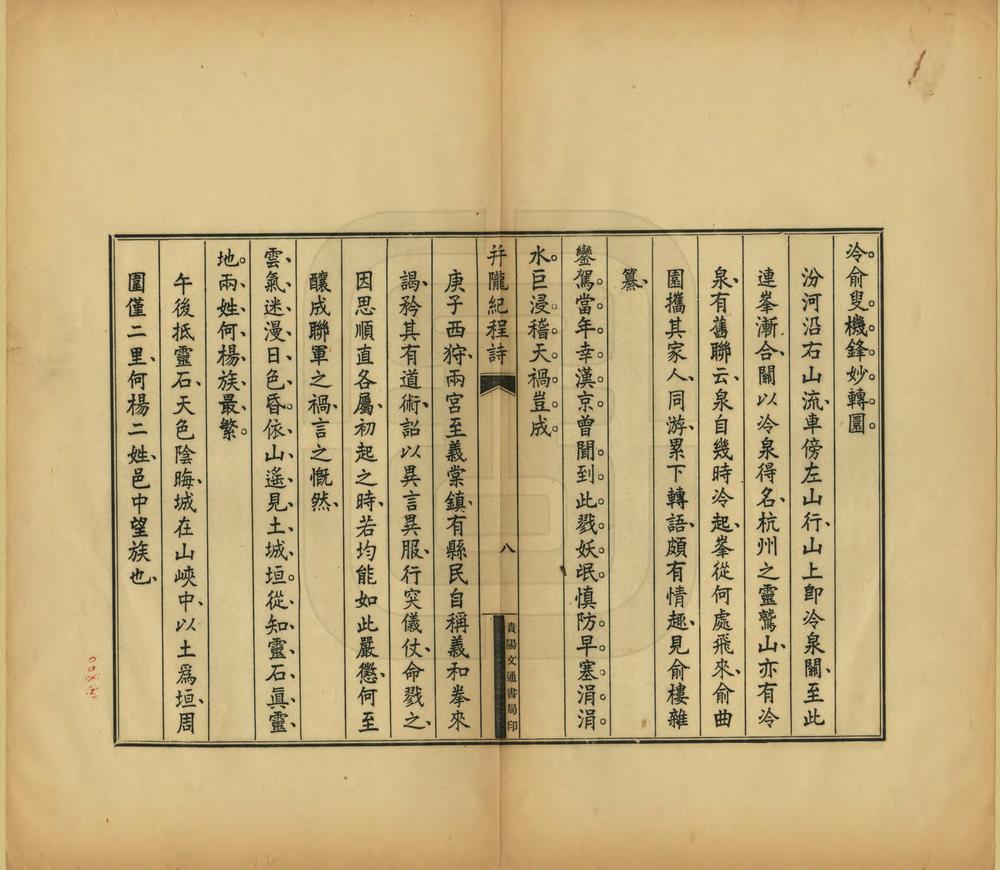 冷。俞叟。機。鋒。妙。轉。圜。
汾河沿右山流、車傍左山行、山上卽冷泉關、至此
連峯漸合、關以冷泉得名、杭州之靈鷲山、亦有冷
泉、有舊聯云、泉自幾時冷起、峯從何處飛來、俞曲
園攜其家人、同游、累下轉語、頗有情趣、見俞樓雜
纂、
鑾駕。當年。幸。漢。京。曾聞。到。此。戮。妖。氓。慎。防。早。塞。涓。涓。
水。巨。浸。稽。天。禍。豈。成。
幷隴紀程詩
八
貴陽文通書局印
庚子西狩、兩宮至義棠鎮、有縣民自稱義和拳來
謁、矜其有道術、詔以異言異服、行突儀仗、命戮之、
因思順直各屬、初起之時、若均能如此嚴懲、何至
釀成聯軍之禍、言之慨然、
雲、氣、迷、漫、日、色、昏。依、山、遙、見、土、城、垣。從、知、靈、石、眞、靈、
地。兩、姓、何、楊、族、最、繁。
午後抵靈石、天色陰晦、城在山峽中、以土爲垣、周
圍僅二里、何楊二姓、邑中望族也、